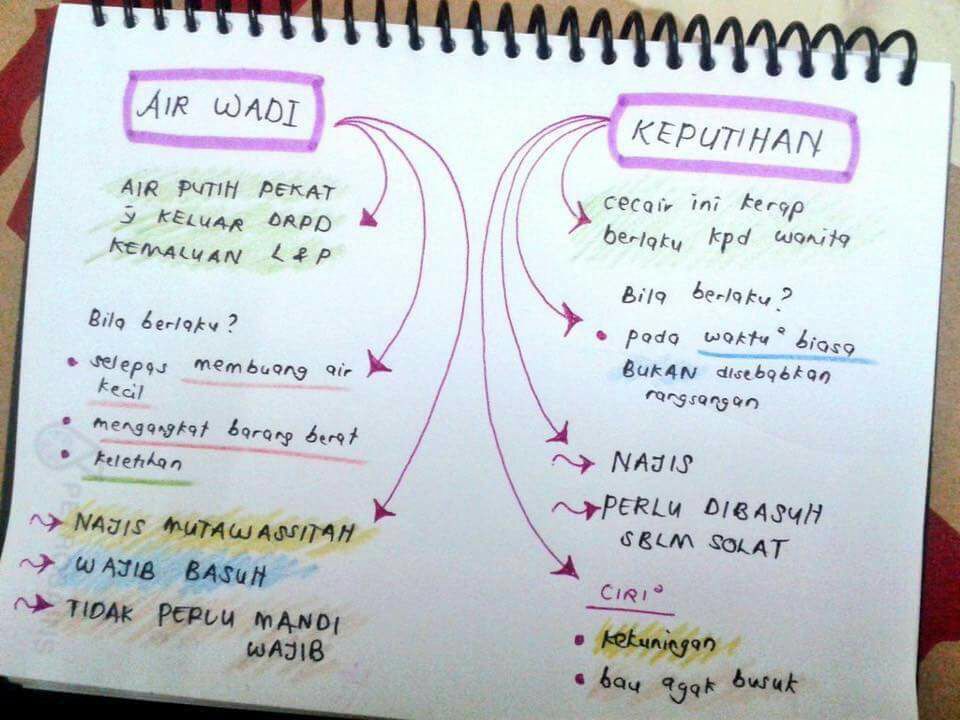 AIR WADI
AIR PUTIH PEKAT
ÿ KELUAR DRPD
KEMALUAN L & P
Bila berlaku?
• selepas membuang air
kecil
• mengangkat barang berat
• keletihan
NAJIS MUTAWASSITAH
WAJIB BASUH
TIDAK PERLU MANDI
WAJIB
KEPUTIHAN
cecair ini kerap
berlaku kpd wanita
Bila berlaku?
• pada waktu² biasa
BUKAN disebabkan
rangsangan
NAJIS
PERLU DIBASUH
SBLM SOLAT
CIRI²
• kekuningan
• bau agak busuk